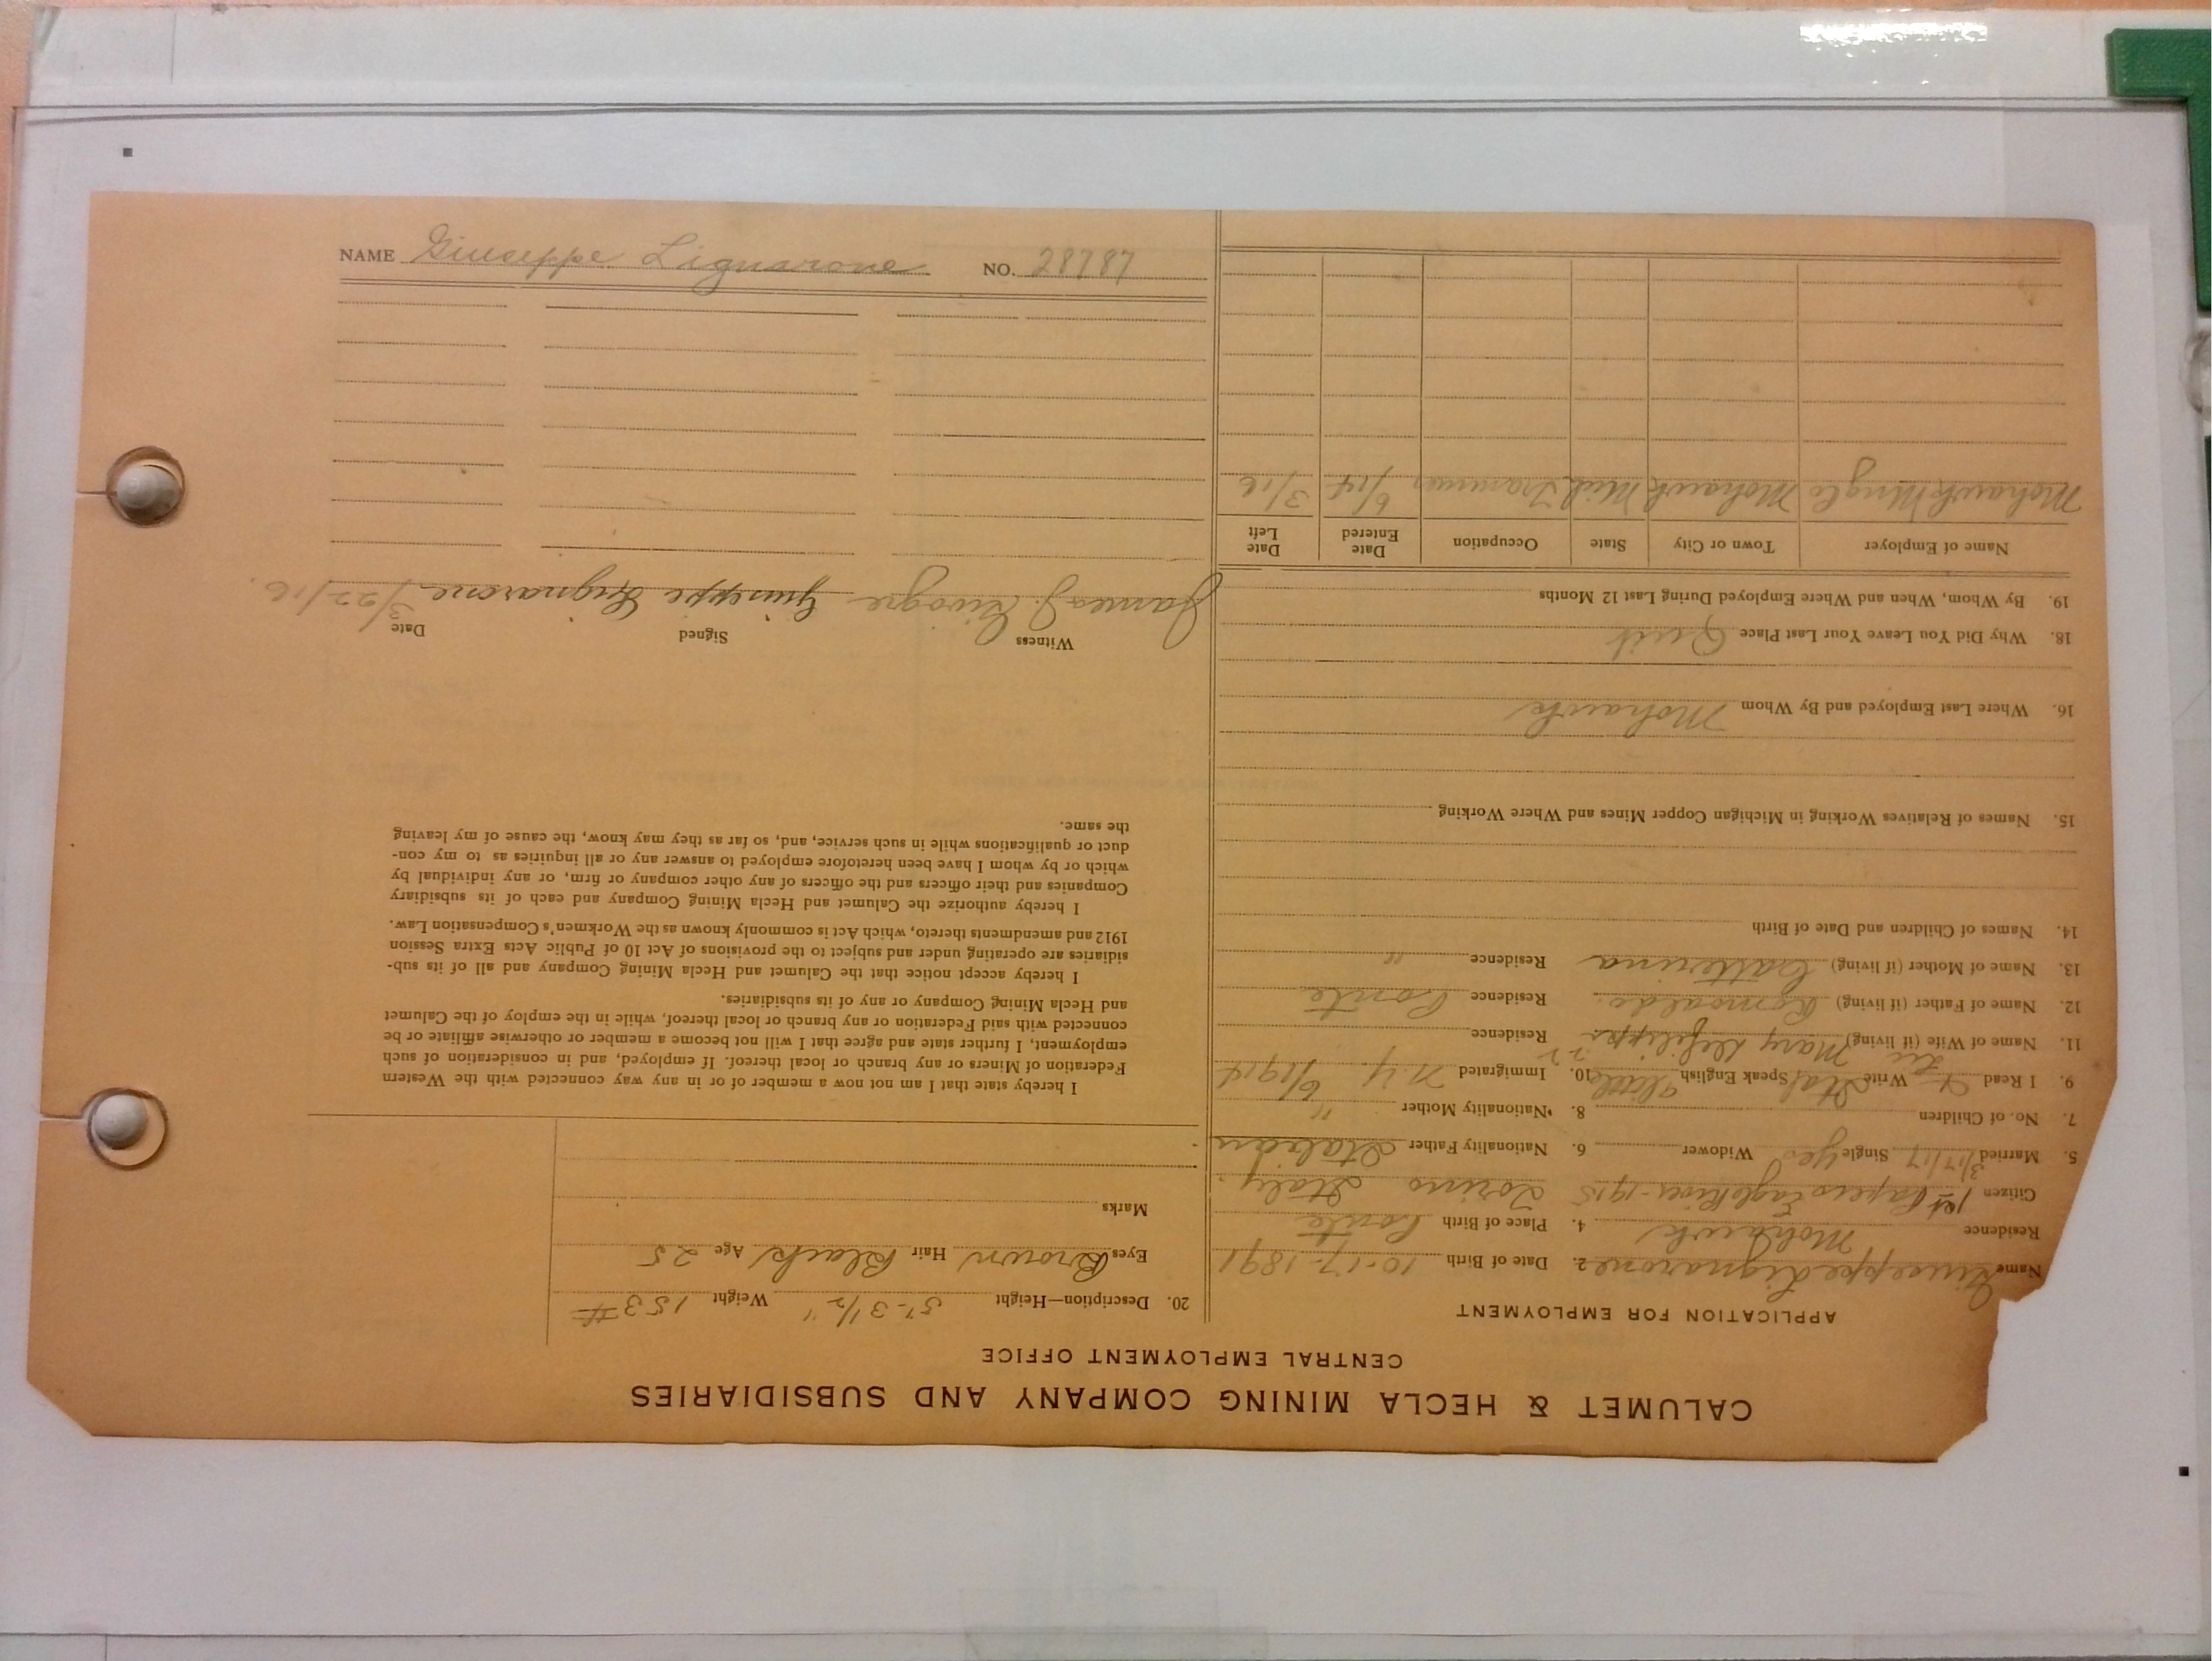 CALUMET & HECLA MINING COMPANY AND SUBSIDIARIES
CENTRAL EMPLOYMENT OFFICE
APPLICATION FOR EMPLOYMENT
Name Giuseppe Lignarone 2. Date of Birth 10-17-1891
Residence Mohawk 4. Place of Birth Conte
Citizen 1st Papers Eagle River-1915 Torino Italy.
5. Married 3/17/17 Single yes Widower 6. Nationality Father Italian
7. No. of Children 8. Nationality Mother "
9. I Read Write Ital Speak English little 10. Immigrated N.Y. 6/1914
11. Name of Wife (if living) Mary Residence
12. Name of Father (if living) Romoaldo. Residence Conte
13. Name of Mother (if living) Catterina Residence "
14. Names of Children and Date of Birth
15. Names of Relatives Working in Michigan Copper Mines and Where Working
16. Where Last Employed and By Whom Mohawk
18. Why Did You Leave Your Last Place Quit
19. By Whom, When and Where Employed During Last 12 Months
Name of Employer Town or City State Occupation Date Entered Date Left
Mohawk Mng Co Mohawk Mich Trammer 6/14 3/16
20. Description—Height 5'-3 1/2" Weight 153 #
Eyes Brown Hair Black Age 25
Marks
I hereby state that I am not now a member of or in any way connected with the Western
Federation of Miners or any branch or local thereof. If employed, and in consideration of such
employment, I further state and agree that I will not become a member or otherwise affiliate or be
connected with said Federation or any branch or local thereof, while in the employ of the Calumet
and Hecla Mining Company or any of its subsidiaries.
I hereby accept notice that the Calumet and Hecla Mining Company and all of its sub-
sidiaries are operating under and subject to the provisions of Act 10 of Public Acts Extra Session
1912 and amendments thereto, which Act is commonly known as the Workmen's Compensation Law.
I hereby authorize the Calumet and Hecla Mining Company and each of its subsidiary
Companies and their officers and the officers of any other company or firm, or any individual by
which or by whom I have been heretofore employed to answer any or all inquiries as to my con-
duct or qualifications while in such service, and, so far as they may know, the cause of my leaving
the same.
Witness Signed Date
James J. Giuseppe Lignarone 3/22/16.
NAME Giuseppe Lignarone NO. 28787